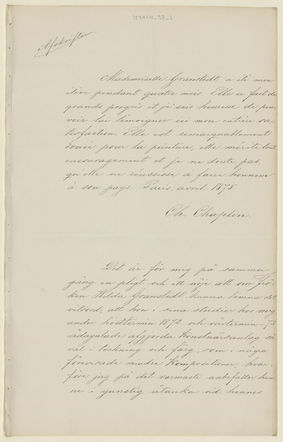 Afskrifter
Mademoiselle Granstedt a été mon
élève pendant quatre mois. Elle a fait de
grands progrès et je suis heureux de pou
voir lui témoigner ici mon entière sa
tisfaction. Elle est remarquablement
douée pour la peinture, elle mérite tout
encouragement et je ne doute pas,
qu'elle ne réussisse à faire honneur
à son pays. Paris, avril 1875.
Ch. Chaplin.
Det är för mig på samma
gång en pligt och ett nöje att om frö
ken Hilda Granstedt kunna lemna det
vitsord, att hon i sina studier hos mig
under hösttermin 1872 och vårtermin
ådagalade afgjorda konstnärsanlag så
väl i teckning och färg, som i några
förevisade mindre kompositioner, hvar
före jag på det varmaste anbefaller hen
ne i gunstig åtanke vid hennes